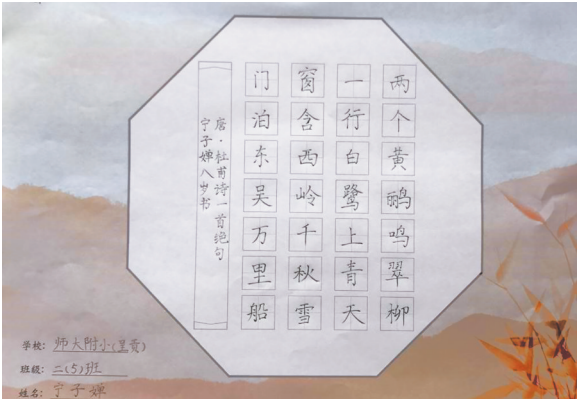 两个黄鹂鸣翠柳
一行白鹭上青天
窗含西岭千秋雪
门泊东吴万里船
唐·杜甫诗一首绝句
宁子婵八岁书
学校: 师大附小(里贡)
班级: 二(5)班
姓名: 宁子婵